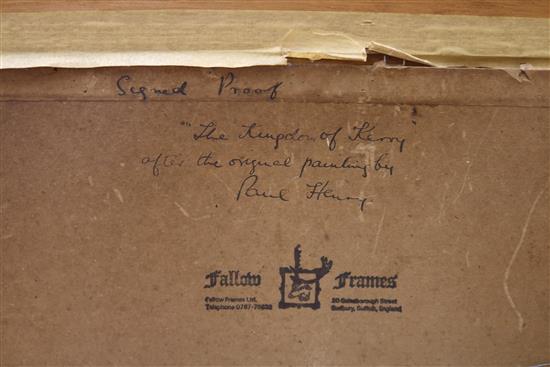 Signed Proof
"The Kingdom of Kerry"
after the original painting by
Paul Henry
Fallow Frames
Fallow Frames Ltd.
Telephone 0787-
20 Gainsborough Street
Sudbury, Suffolk, England